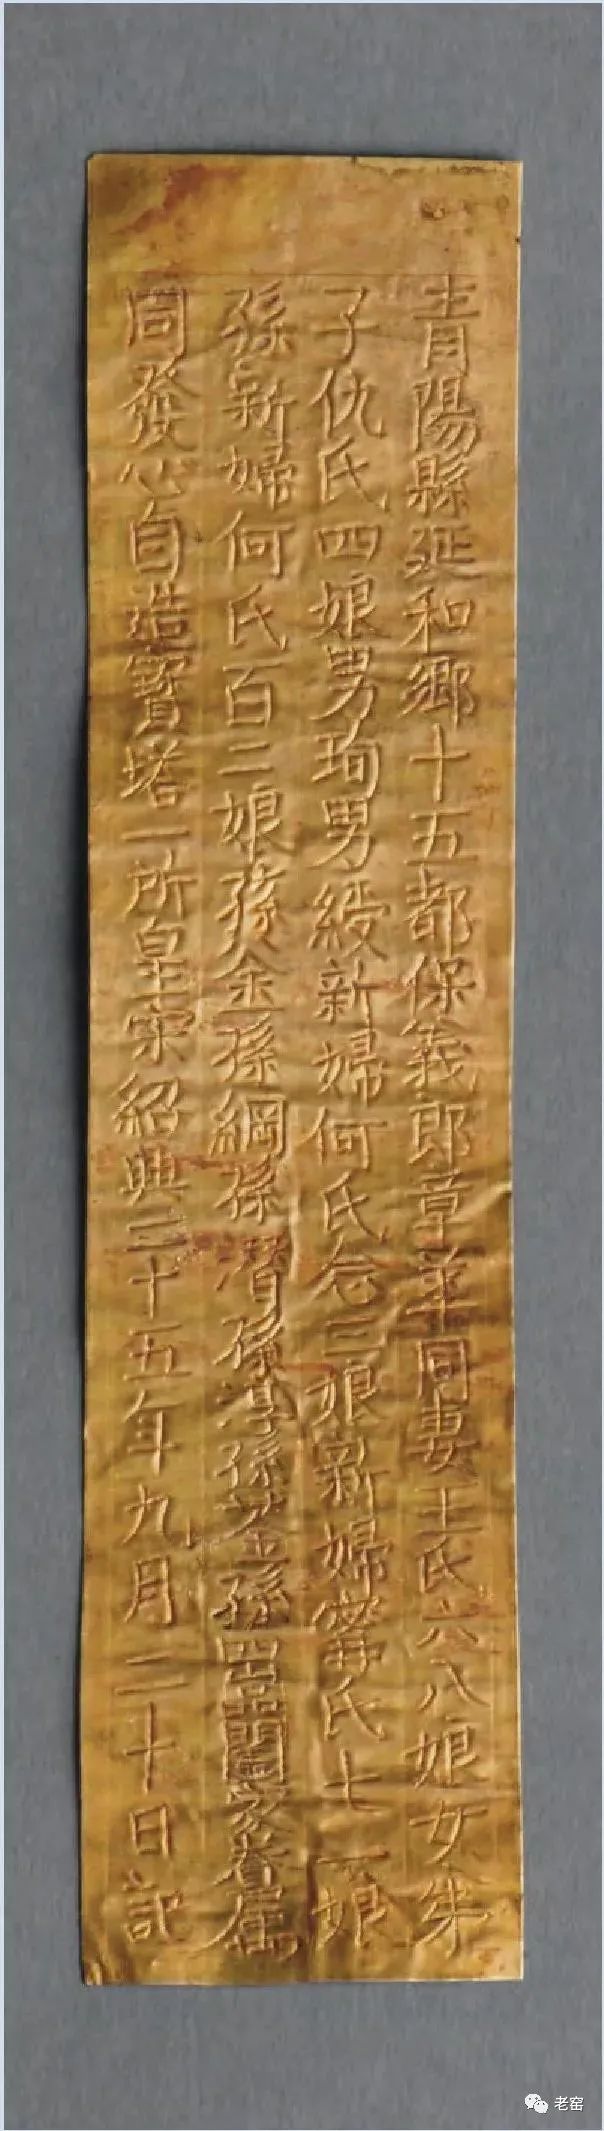 青陽縣延和鄉十五都保義郎章華同妻王氏六八娘女弟
子仇氏四娘男珣男綬新婦何氏念三娘新婦甯氏七一娘
孫新婦何氏百二娘孫金孫綱孫潛孫淳孫荃孫 闔家眷屬
同發心自造寶塔一所皇宋紹興二十五年九月二十日記
老窑